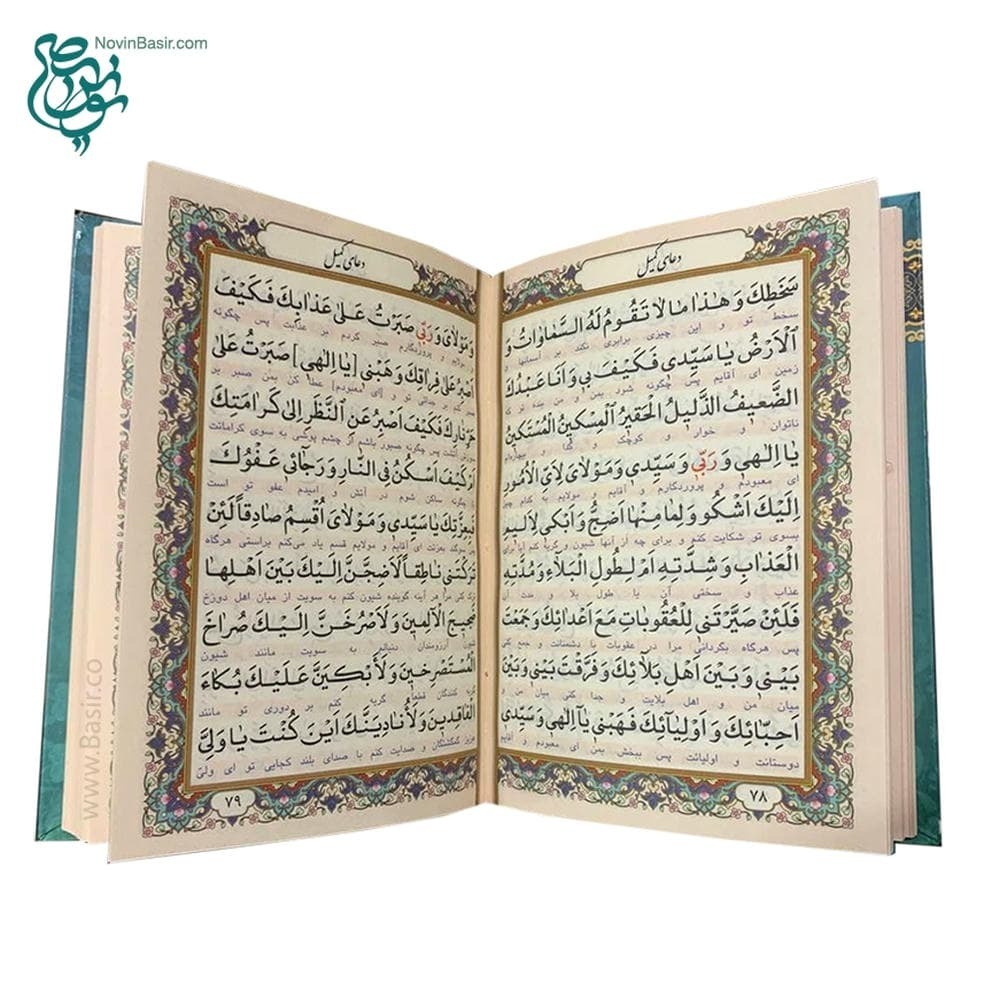 NovinBasir.com
دعای کمیل
سَخَطِكَ وَهٰذا مالا تَقُومُ لَهُ السَّمٰاوٰاتُ وَ
سخط تو و این چیزی برابری نکند بر آسمانها و
الْاَرْضُ يٰا سَيِّدى فَكَيْفَ بى وَاَنَا عَبْدُكَ
زمین ای آقایم پس چگونه شود بمن و من بنده تو که
الضَّعيفُ الذَّليلُ الْحَقيرُ الْمِسْكينُ الْمُسْتَكينُ
ناتوان و خوار و کوچک و گدا و بیچاره‌ام
يٰا اِلٰهى وَ رَبّى وَ سَيِّدى وَ مَوْلاىَ لِاَىِّ الْاُمُورِ
ای معبودم و پروردگارم و آقایم و مولایم به کدام چیز
اِلَيْكَ اَشْكُو وَ لِمٰا مِنْهٰا اَضِجُّ وَ اَبْكى لِاَليمِ
بسوی تو شکایت کنم و برای چه از آنها شیون و گریه کنم آیا برای
الْعَذٰابِ وَ شِدَّتِهِ اَمْ لِطُولِ الْبَلاٰءِ وَ مُدَّتِهِ
عذاب و سختی آن یا طول بلا و مدت آن
فَلَئِنْ صَيَّرْتَنى لِلْعُقُوبٰاتِ مَعَ اَعْدٰائِكَ وَ جَمَعْتَ
پس هرگاه بگردانی مرا در عقوبات با دشمنانت و جمع کنی
بَيْنى وَ بَيْنَ اَهْلِ بَلاٰئِكَ وَ فَرَّقْتَ بَيْنى وَ بَيْنَ
میان من و اهل بلایت و جدا کنی میان من و
اَحِبّٰائِكَ وَ اَوْلِيٰائِكَ فَهَبْنى يٰا اِلٰهى وَ سَيِّدى
دوستانت و اولیائت پس ببخش بمن ای معبودم و آقایم
۷۸
دعای کمیل
وَ مَوْلاىَ وَ رَبّى صَبَرْتُ عَلىٰ عَذٰابِكَ فَكَيْفَ
و مولایم و پروردگارم صبر کردم بر عذابت پس چگونه
اَصْبِرُ عَلىٰ فِرٰاقِكَ وَ هَبْنى [يٰا اِلٰهى] صَبَرْتُ عَلىٰ
صبر کنم بر جدائی تو و [ای معبودم] عطا کن بمن صبر بر
حَرِّ نٰارِكَ فَكَيْفَ اَصْبِرُ عَنِ النَّظَرِ اِلىٰ كَرٰامَتِكَ
آتشت پس چگونه صبور باشم از چشم پوشی به سوی کرامانت
اَمْ كَيْفَ اَسْكُنُ فِى النّٰارِ وَ رَجٰائى عَفْوُكَ
چگونه ساکن شوم در آتش و امیدم عفو تو است
فَبِعِزَّتِكَ يٰا سَيِّدى وَ مَوْلاىَ اُقْسِمُ صٰادِقاً لَئِنْ
سوگند بعزتت ای آقایم و مولایم قسم یاد می‌کنم براستی هرگاه
تَرَكْتَنى نٰاطِقاً لَاَضِجَّنَّ اِلَيْكَ بَيْنَ اَهْلِهٰا
ترک کنی مرا هر آینه گوینده شیون کنم به سویت از میان اهل دوزخ
ضَجيجَ الْآمِلينَ وَ لَاَصْرُخَنَّ اِلَيْكَ صُرٰاخَ
شیون آرزومندان به سویت مانند شیون
الْمُسْتَصْرِخينَ وَ لَاَبْكِيَنَّ عَلَيْكَ بُكٰاءَ
گریه کنندگان قطعاً گریه کنم بر دوری تو مانند
الْفٰاقِدينَ وَ لَاُنٰادِيَنَّكَ اَيْنَ كُنْتَ يٰا وَلِىَّ
گمگشتگان و صدایت کنم با صدای بلند کجایی تو ای ولیّ
۷۹
www.Basir.co